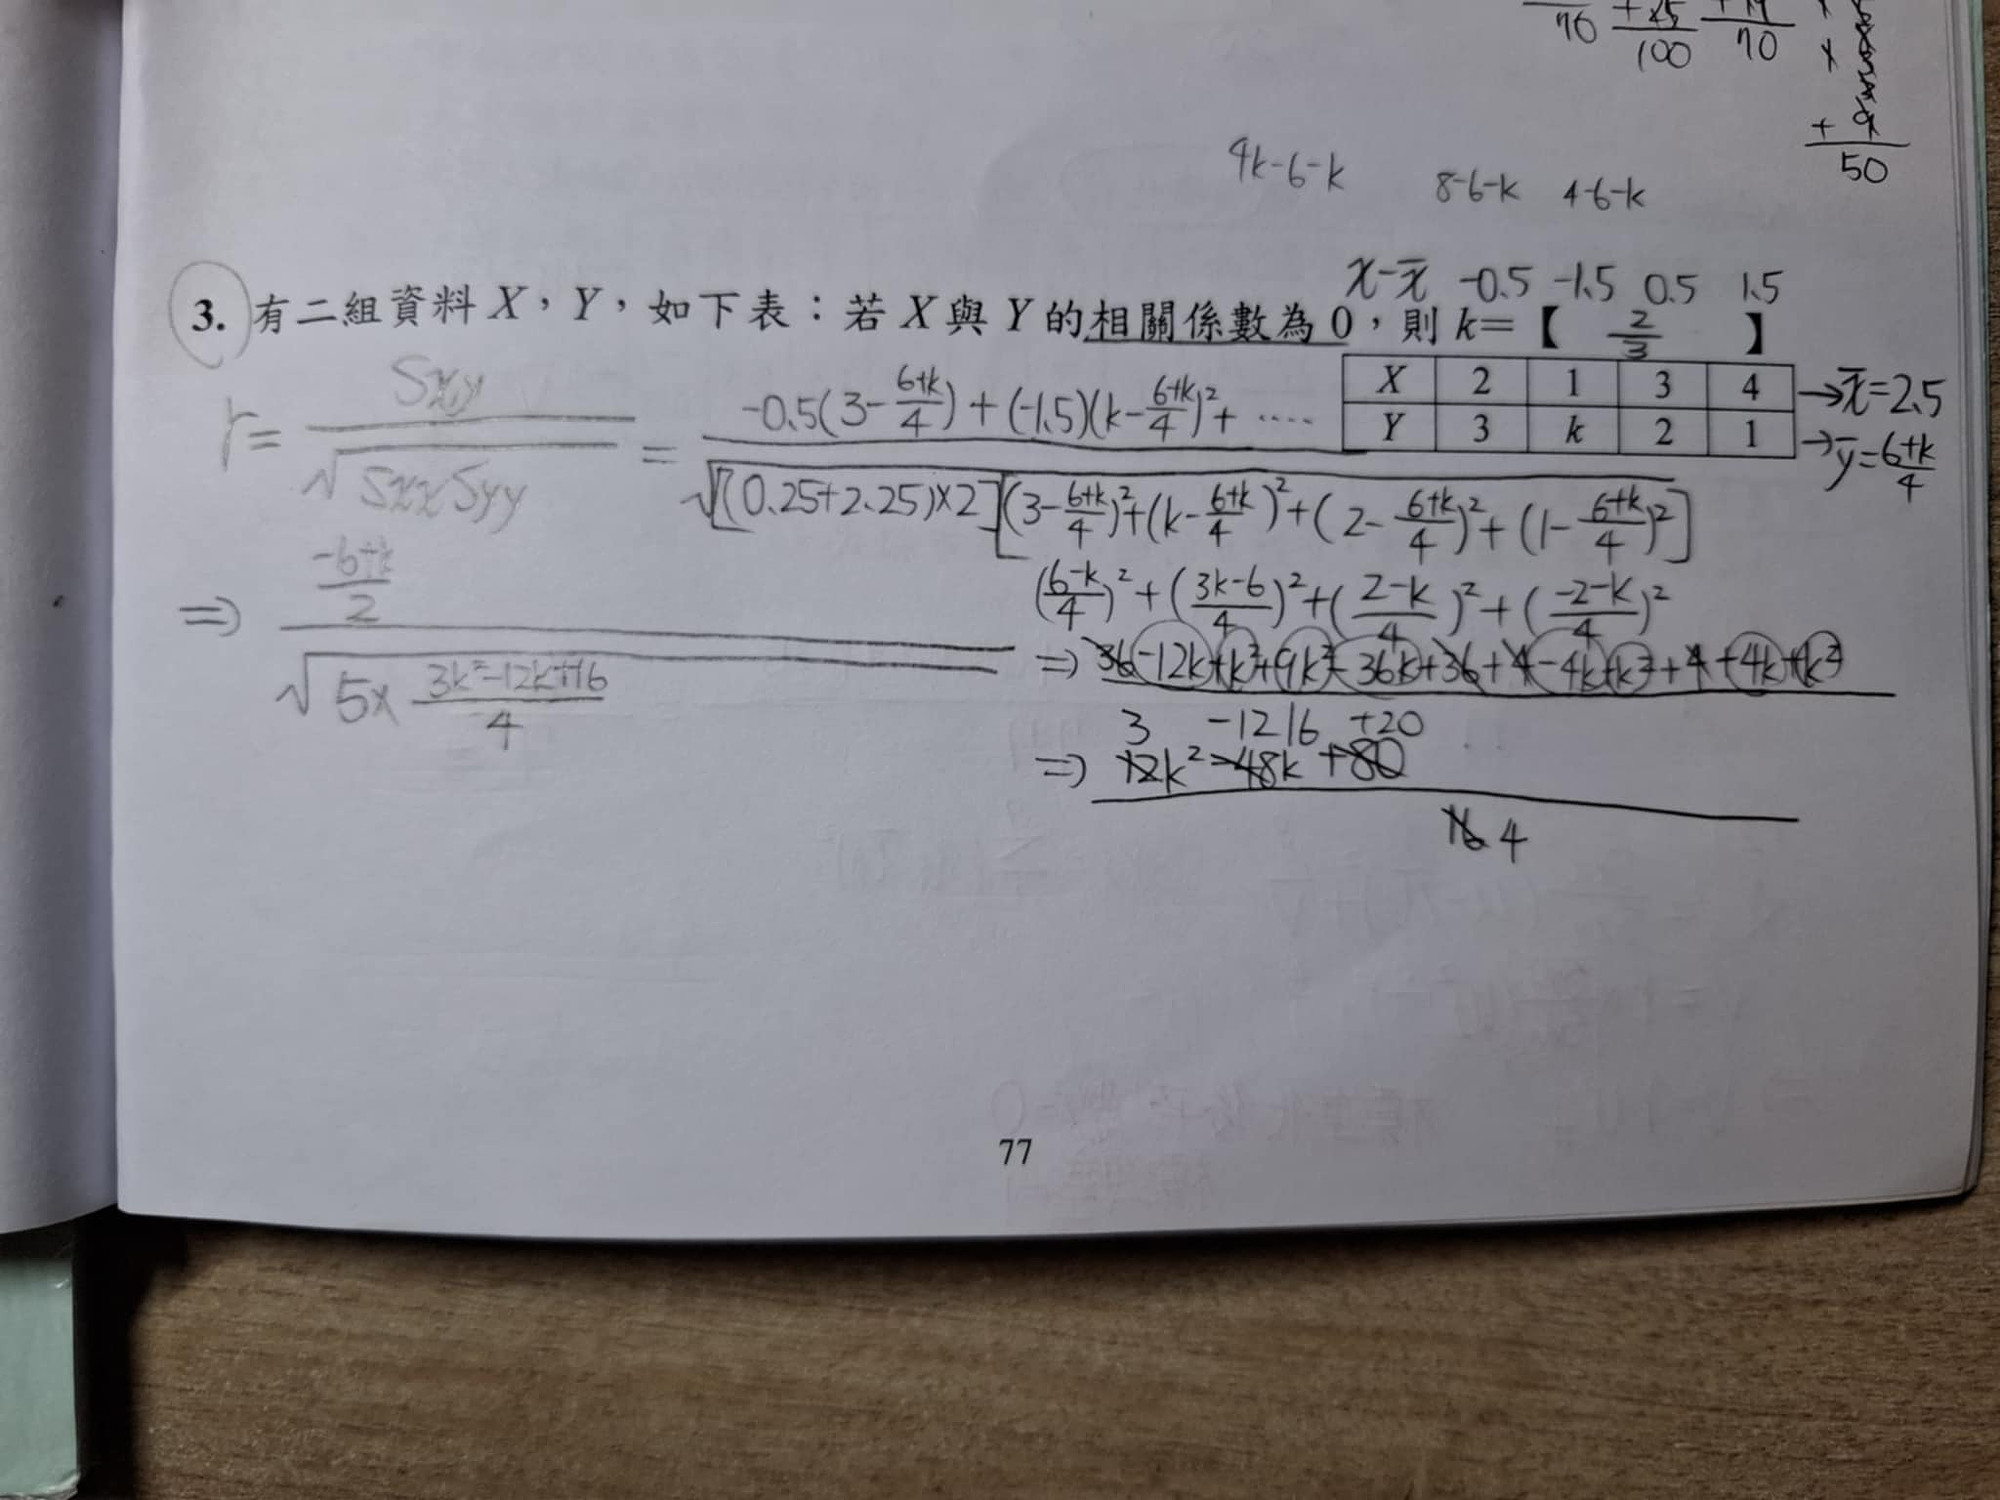 70 +25 70
100
+ 9
50
4k-6-k 8-6-k 4-6-k
x-x̄ -0.5 -1.5 0.5 1.5
3. 有二組資料 X，Y，如下表：若 X 與 Y 的相關係數為 0，則 k=【 2/3 】
X 2 1 3 4 →x̄=2.5
Y 3 k 2 1 →ȳ=(6+k)/4
r = Sxy/√(SxxSyy) = (-0.5(3-(6+k)/4)+(-1.5)(k-(6+k)/4)²+ ·····)/√([(0.25+2.25)×2][(3-(6+k)/4)²+(k-(6+k)/4)²+(2-(6+k)/4)²+(1-(6+k)/4)²])
((6-k)/4)²+((3k-6)/4)²+((2-k)/4)²+((-2-k)/4)²
⇒ ((-6+k)/2)/√(5×(3k²-12k+16)/4)
⇒ 36-12k+k²+9k²-36k+36+4-4k+k²+4+4k+k²
3 -12 16 +20
⇒ 12k²-48k+80
16 4
77